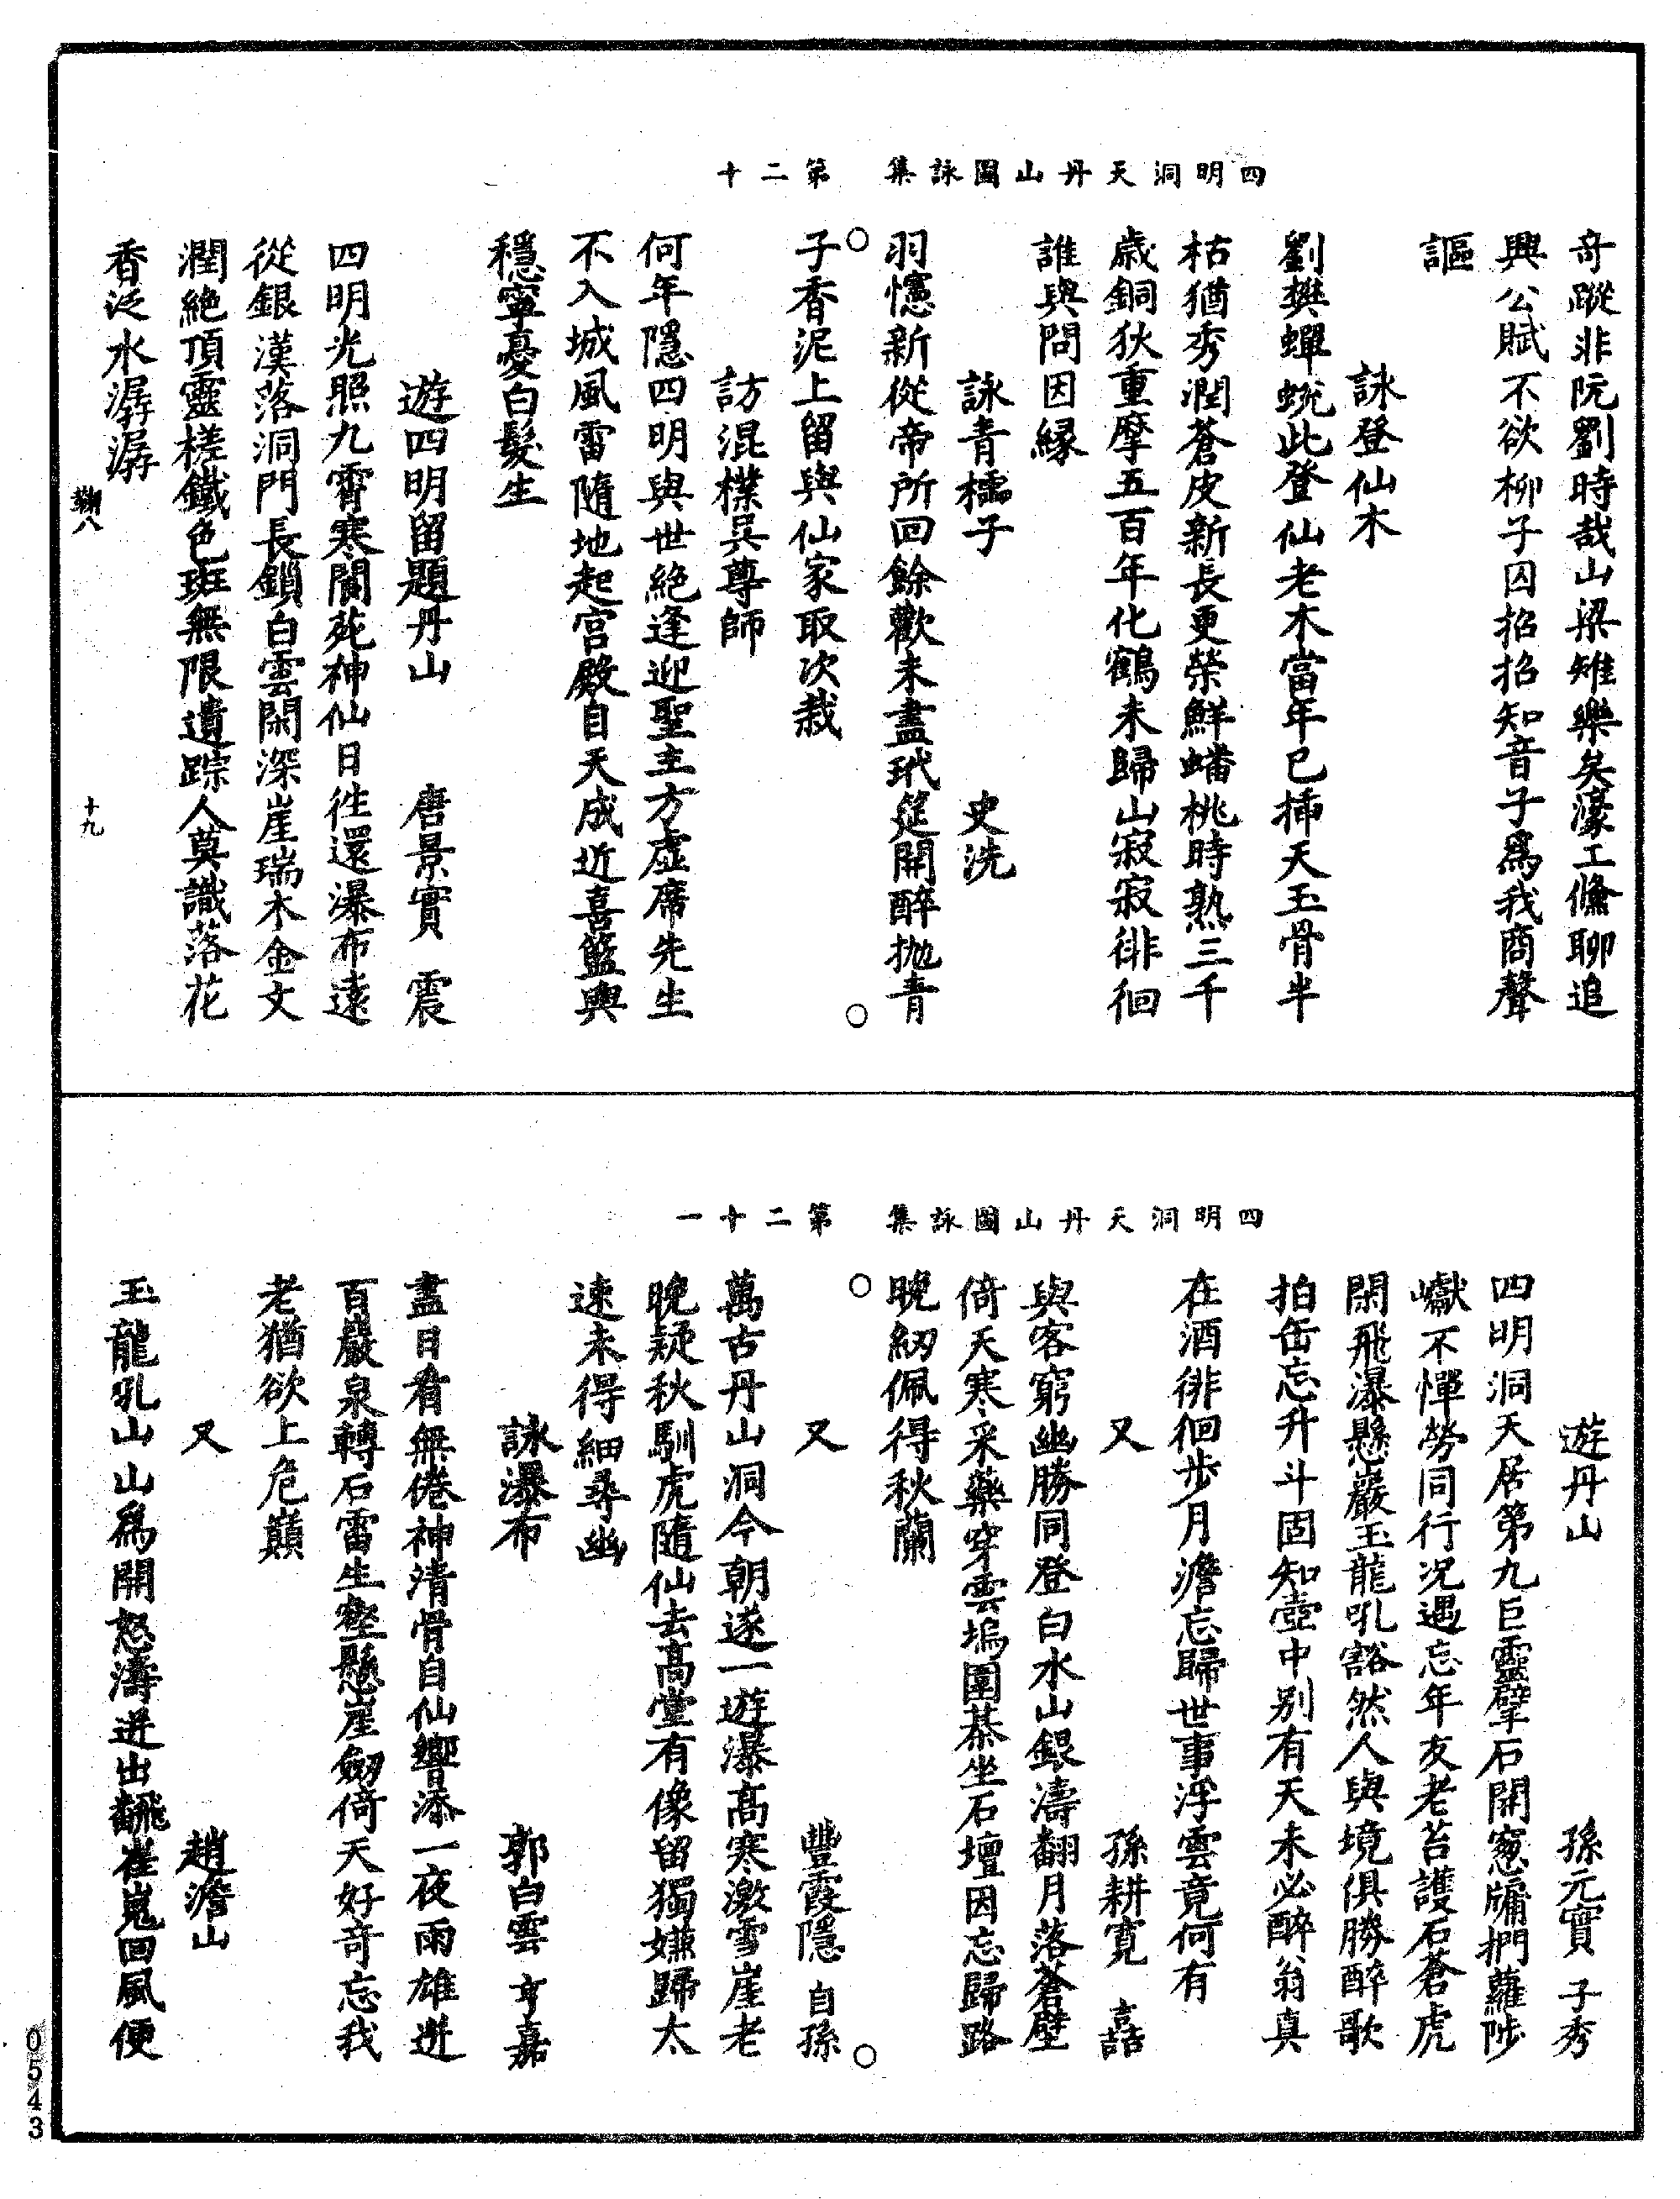 四明洞天丹山圖詠集　第二十
奇蹤非阮劉時哉山梁雉樂矣濠工鯈聊追
興公賦不欲柳子囚招招知音子爲我商聲
謳
詠登仙木
劉樊蟬蛻此登仙老木當年已揷天玉骨半
枯猶秀潤蒼皮新長更榮鮮蟠桃時熟三千
歳銅狄重摩五百年化鶴未歸山寂寂徘徊
誰與問因緣
詠青櫺子　史洗
羽幰新從帝所回餘歡未盡玳筵開醉抛青
子香泥上留與仙家取次栽
訪混樸吳尊師
何年隱四明與世絶逢迎聖主方虛席先生
不入城風雷隨地起宮殿自天成近喜籃輿
穩寧憂白髮生
遊四明留題丹山　唐景實　震
四明光照九霄寒閬苑神仙日徃還瀑布遠
從銀漢落洞門長鎖白雲閑深崖瑞木金文
潤絶頂靈槎鐵色斑無限遺踪人莫識落花
香泛水潺潺
鞠八　十九
四明洞天丹山圖詠集　第二十一
遊丹山　孫元實　子秀
四明洞天居第九巨靈擘石開窓牖捫蘿陟
巘不憚勞同行况遇忘年友老苔護石蒼虎
閑飛瀑懸巖玉龍吼豁然人與境俱勝醉歌
拍缶忘升斗固知壺中別有天未必醉翁真
在酒徘徊步月澹忘歸世事浮雲竟何有
又　孫耕寛　嚞
與客窮幽勝同登白水山銀濤翻月落蒼壁
倚天寒采藥穿雲塢圍棊坐石壇因忘歸路
晚紉佩得秋蘭
又　豐霞隱　自孫
萬古丹山洞今朝遂一遊瀑高寒激雪崖老
晚疑秋馴虎隨仙去高堂有像留獨嫌歸太
速未得細尋幽
詠瀑布　郭白雲　亨嘉
盡日看無倦神清骨自仙響添一夜雨雄迸
百巖泉轉石雷生壑懸崖劒倚天好奇忘我
老猶欲上危巔
又　趙澹山
玉龍吼山山爲開怒濤迸出飜崔嵬回風便
0543